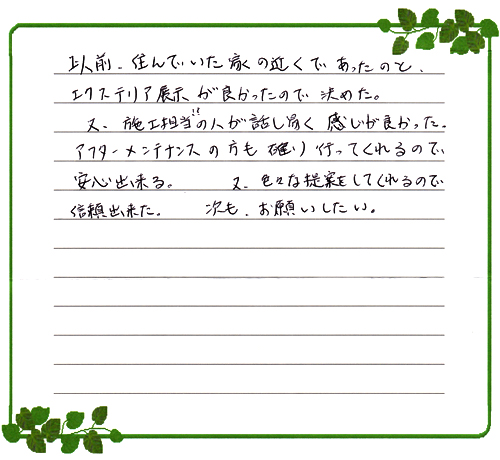 以前、住んでいた家の近くであったのと、
エクステリア展示が良かったので決めた。
又、施工担当の人が話し易く感じが良かった。
アフターメンテナンスの方も確り行ってくれるので、
安心出来る。 又、色々な提案をしてくれるので
信頼出来た。 次も、お願いしたい。